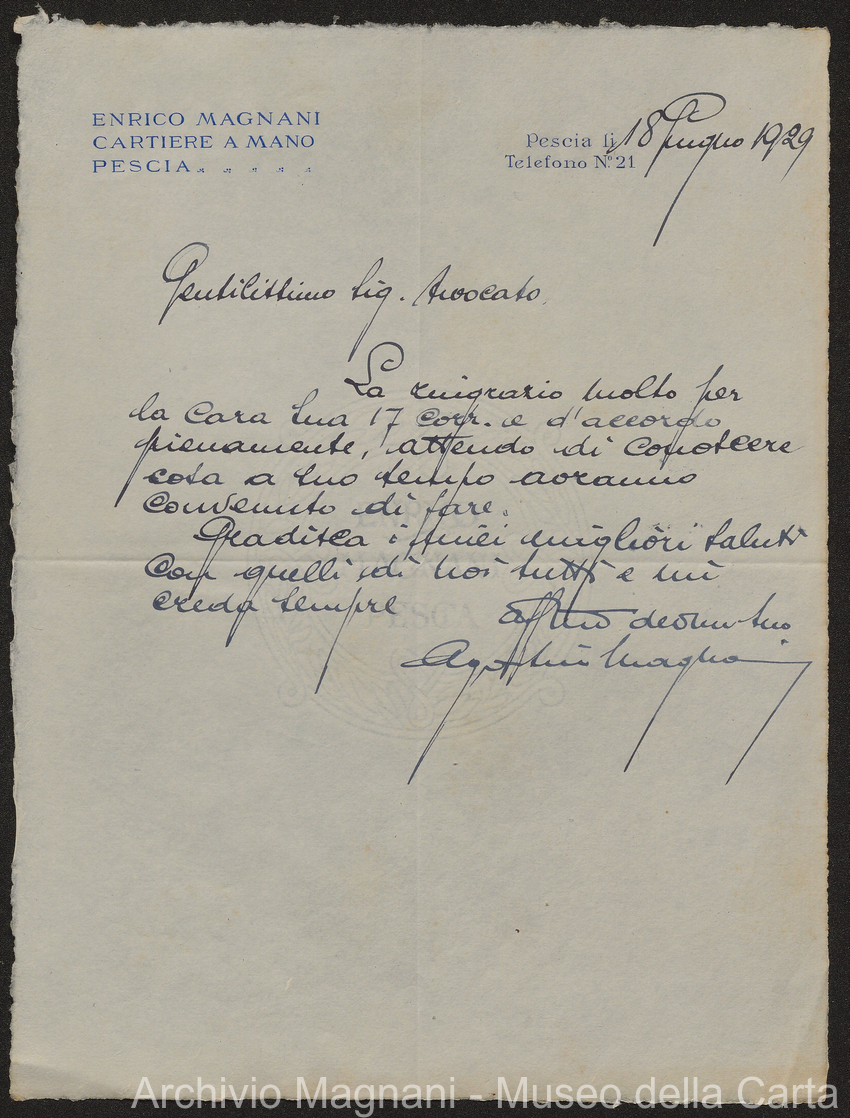 ENRICO MAGNANI
CARTIERE A MANO
PESCIA
Pescia li 18 Giugno 1929
Telefono N.º 21
Gentilissimo Sig. Avvocato,
La ringrazio molto per
la Cara Sua 17 Corr. e d'accordo
pienamente, attendo di conoscere
cosa a suo tempo avranno
convenuto di fare.
Gradisca i miei migliori saluti
con quelli di noi tutti e mi
creda sempre
Aff.mo devmo Suo
Magnani
Archivio Magnani - Museo della Carta